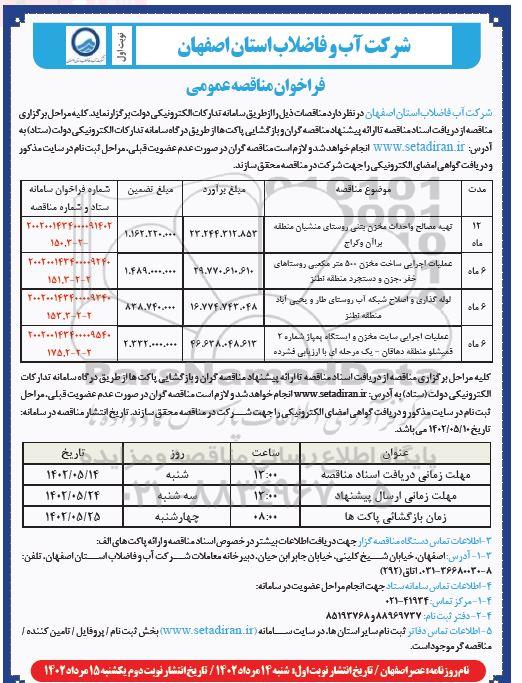 شرکت آب و فاضلاب استان اصفهان
نوبت اول
فراخوان مناقصه عمومی
شرکت آب فاضلاب استان اصفهان در نظر دارد مناقصات ذیل را از طریق سامانه تدارکات الکترونیکی دولت برگزار نماید. کلیه مراحل برگزاری
مناقصه از دریافت اسناد مناقصه تا ارائه پیشنهاد مناقصه گران و بازگشایی پاکت ها از طریق درگاه سامانه تدارکات الکترونیکی دولت (ستاد) به
آدرس: www.setadiran.ir انجام خواهد شد و لازم است مناقصه گران در صورت عدم عضویت قبلی، مراحل ثبت نام در سایت مذکور
و دریافت گواهی امضای الکترونیکی را جهت شرکت در مناقصه محقق سازند.
مدت | موضوع مناقصه | مبلغ برآورد | مبلغ تضمین | شماره فراخوان سامانه ستاد و شماره مناقصه
۱۲ ماه | تهیه مصالح واحداث مخزن بتنی روستای منشیان منطقه براآن وکراج | ۲۳.۲۴۴.۳۱۲.۸۵۳ | ۱.۱۶۲.۲۲۰.۰۰۰ | ۲۰۰۲۰۰۱۴۳۴۰۰۰۰۹۱۴۰۲ -۲-۱۵۰.۳
۶ ماه | عملیات اجرایی ساخت مخزن ۵۰۰ متر مکعبی روستاهای خفر ،جزن و دستجرد منطقه نطنز | ۲۹.۷۷۰.۶۱۰.۶۱۰ | ۱.۴۸۹.۰۰۰.۰۰۰ | ۲۰۰۲۰۰۱۴۳۴۰۰۰۰۹۲۴۰ ۲-۲-۱۵۱.۳
۶ ماه | لوله گذاری و اصلاح شبکه آب روستای طار و یحیی آباد منطقه نطنز | ۱۶.۷۷۴.۷۴۳.۰۴۸ | ۸۳۸.۷۴۰.۰۰۰ | ۲۰۰۲۰۰۱۴۳۴۰۰۰۰۹۳۴۰ ۲-۲-۱۵۳.۳
۶ ماه | عملیات اجرایی سایت مخزن و ایستگاه پمپاژ شماره ۲ قمیشلو منطقه دهاقان – یک مرحله ای با ارزیابی فشرده | ۴۶.۶۳۸.۰۴۸.۶۱۳ | ۲.۳۳۲.۰۰۰.۰۰۰ | ۲۰۰۲۰۰۱۴۳۴۰۰۰۰۹۵۴۰ ۲-۲-۱۷۵.۲
کلیه مراحل برگزاری مناقصه از دریافت اسناد مناقصه تا ارائه پیشنهاد مناقصه گران و بازگشایی پاکت ها از طریق درگاه سامانه تدارکات
الکترونیکی دولت (ستاد) به آدرس: www.setadiran.ir انجام خواهد شد و لازم است مناقصه گران در صورت عدم عضویت قبلی، مراحل
ثبت نام در سایت مذکور و دریافت گواهی امضای الکترونیکی را جهت شرکت در مناقصه محقق سازند. تاریخ انتشار مناقصه در سامانه:
تاریخ ۱۴۰۲/۰۵/۱۰ می باشد.
عنوان | ساعت | روز | تاریخ
مهلت زمانی دریافت اسناد مناقصه | ۱۳:۰۰ | شنبه | ۱۴۰۲/۰۵/۱۴
مهلت زمانی ارسال پیشنهاد | ۱۳:۰۰ | سه شنبه | ۱۴۰۲/۰۵/۲۴
زمان بازگشائی پاکت ها | ۰۸:۰۰ | چهارشنبه | ۱۴۰۲/۰۵/۲۵
۳-اطلاعات تماس دستگاه مناقصه گزار جهت دریافت اطلاعات بیشتر در خصوص اسناد مناقصه و ارائه پاکت های الف:
۳-۱- آدرس: اصفهان، خیابان شیخ کلینی، خیابان جابر ابن حیان، دبیرخانه معاملات شرکت آب و فاضلاب استان اصفهان، تلفن:
۸-۰۳۱-۳۶۶۸۰۰۳۰، اتاق (۲۹۲)
۴-اطلاعات تماس سامانه ستاد جهت انجام مراحل عضویت در سامانه:
۴-۱- مرکز تماس: ۴۱۹۳۴-۰۲۱
۴-۲- دفتر ثبت نام: ۸۸۹۶۹۷۳۷ و ۸۵۱۹۳۷۶۸
۵-اطلاعات تماس دفاتر ثبت نام سایر استان ها، در سایت سامانه (www.setadiran.ir) بخش ثبت نام / پروفایل / تامین کننده /
مناقصه گر موجود است.
نام روزنامه: عصر اصفهان / تاریخ انتشار نوبت اول: شنبه ۱۴ مرداد ۱۴۰۲ / تاریخ انتشار نوبت دوم یکشنبه ۱۵ مرداد ۱۴۰۲